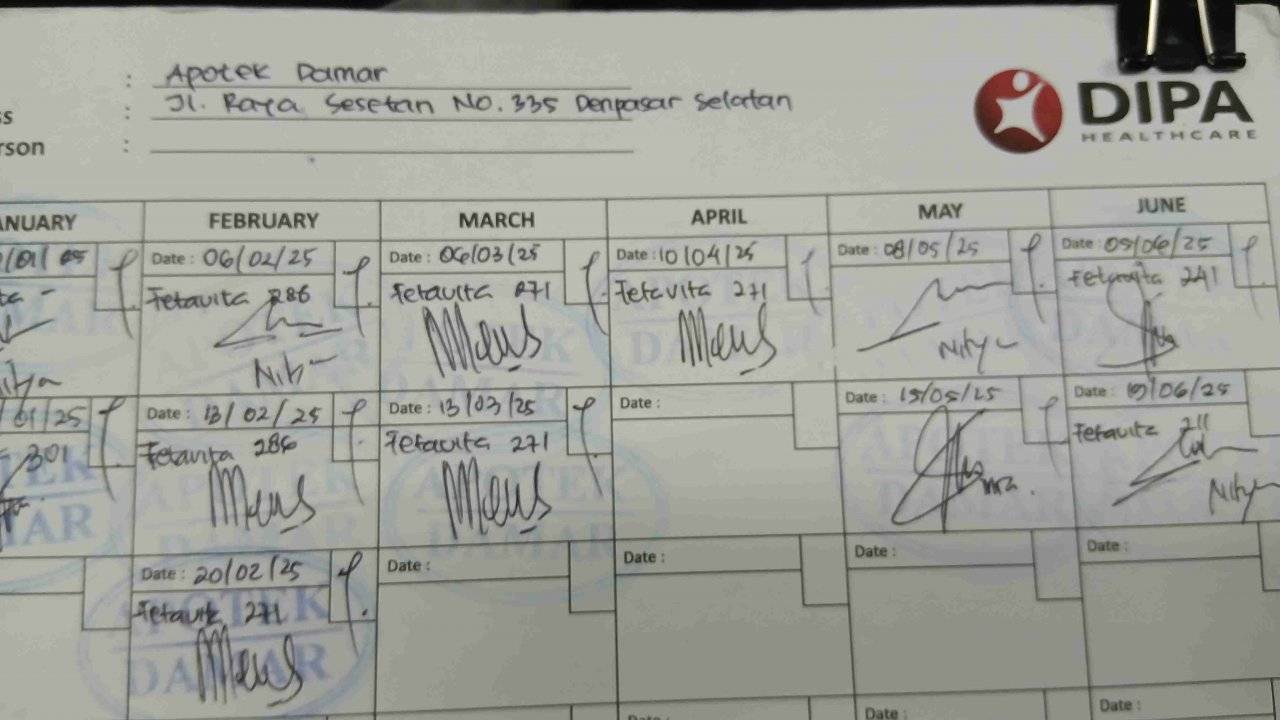 : Apotek Damar
ss : Jl. Raya Sesetan No. 335 Denpasar Selatan
rson :
DIPA
HEALTHCARE
ANUARY FEBRUARY MARCH APRIL MAY JUNE
/01/ Date : 06/02/25 Date : 06/03/25 Date : 10/04/25 Date : 08/05/25 Date : 05/06/25
Fetavita 286 Fetavita 271 Fetavita 271 Fetavita 241
Nitya
/01/25 Date : 13/02/25 Date : 13/03/25 Date : Date : 15/05/25 Date : /06/25
301 Fetavita 286 Fetavita 271 Fetavita 211
Nitya
Date : 20/02/25 Date : Date : Date : Date :
Fetavita 271
APOTEK
DAMAR
Date : Date : Date :